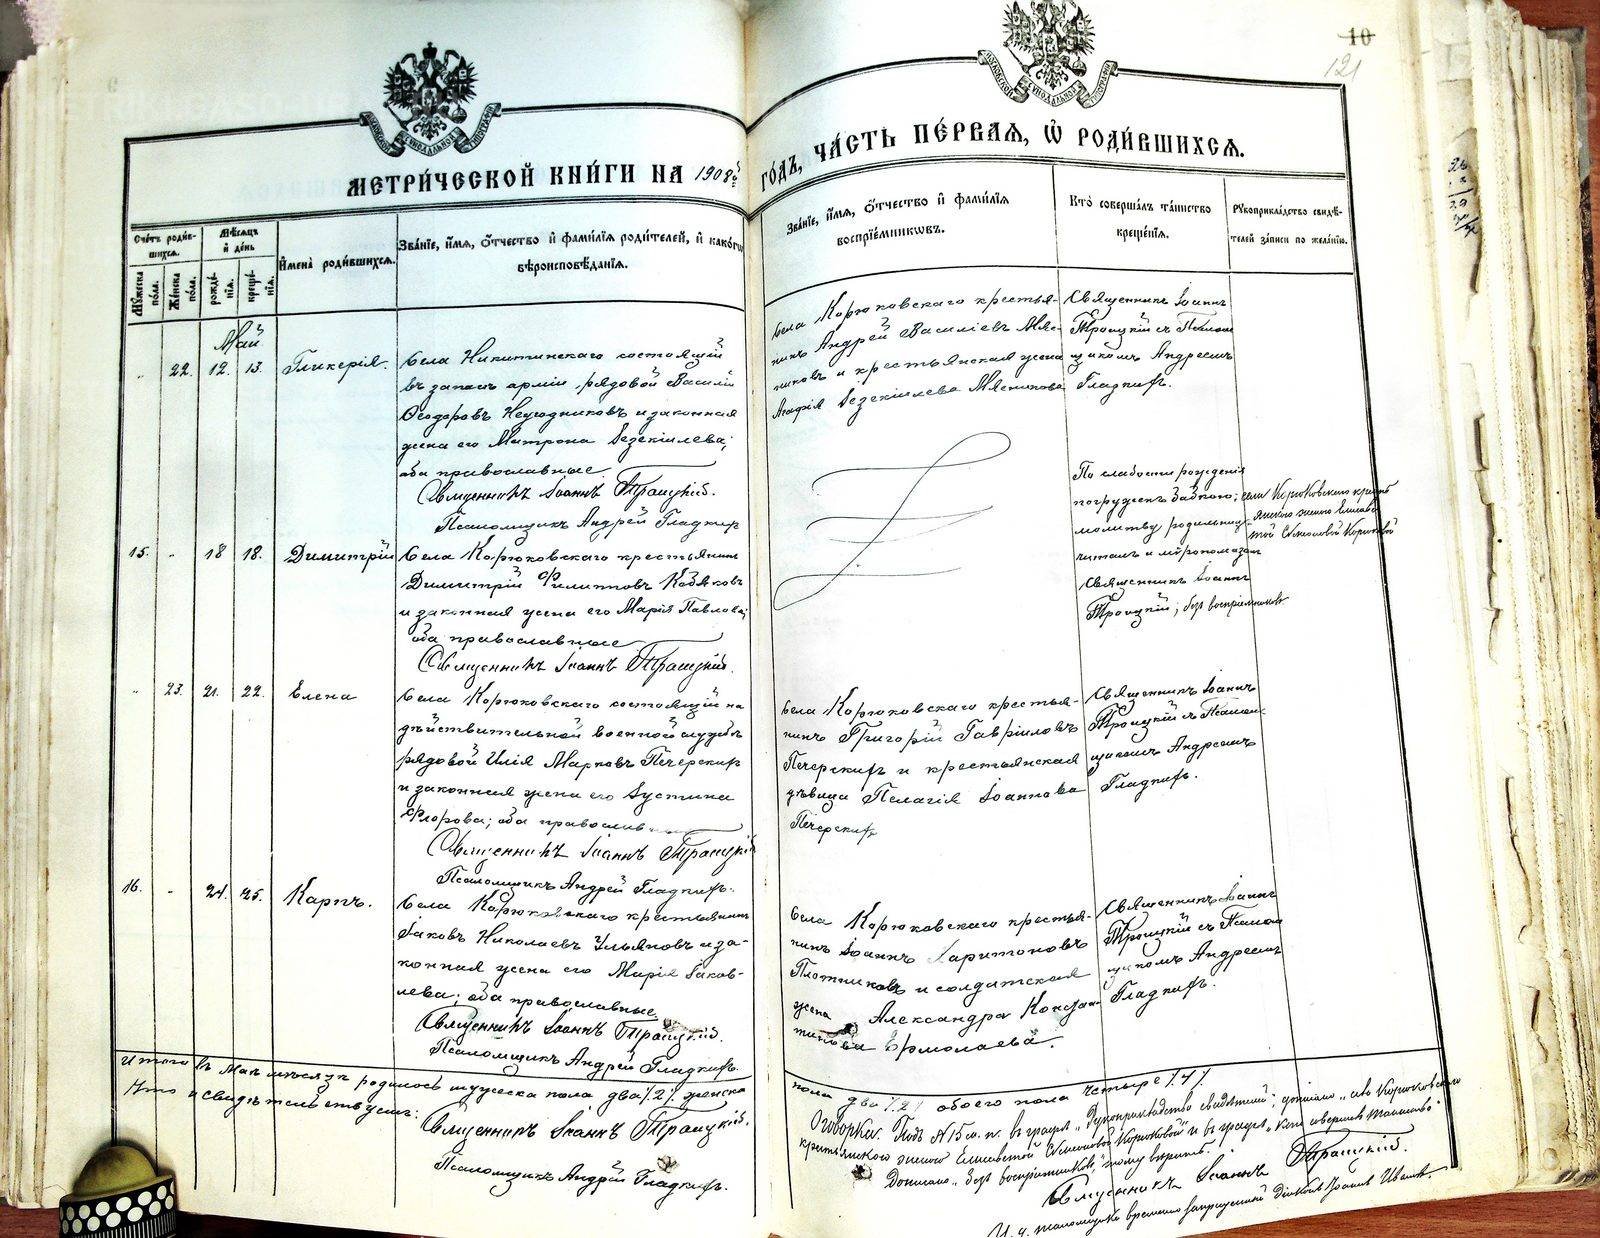 10
121
МЕТРИ́ЧЕСКОЙ КНИ́ГИ НА 1908й
ГО́ДЪ, ЧА́СТЬ ПЕ́РВАЯ, Ѡ РОДИ́ВШИХСЯ.
Сче́тъ роди́в-
шихся.
Мѣ́сяцъ
и́ де́нь
Му́жеска по́ла.
Же́нска по́ла.
рожде́нїя.
креще́нїя.
И́мена̀ роди́вшихся.
Зва́нїе, и́мя, ѻ́тчество и҆ фами́лїя роди́телей, и҆ како́гѡ
вѣроисповѣ́данїя.
Зва́нїе, и́мя, ѻ́тчество и҆ фами́лїя
воспрїе́мникѡвъ.
Кто̀ соверша́лъ та́инство
креще́нїя.
Рꙋкоприкла́дство свидѣ́-
телей за́писи по жела́нїю.
Май
22. 12. 13. Гликерія.
Села Никитинскаго состоящій
въ запасѣ арміи рядовой Василій
Ѳеодоровъ Неугодниковъ и законная
жена его Матрона Іезекіилева;
оба православные
Священникъ Іоаннъ Троицкій.
Псаломщикъ Андрей Гладкихъ
Села Корюковскаго крестья-
нинъ Андрей Василіевъ Мяс-
никовъ и крестьянская жена
Агафія Іезекіилева Мясникова
Священникъ Іоаннъ
Троицкій съ Псалом
щикомъ Андреемъ
Гладкихъ.
15. - 18 18. Димитрій
Села Корюковскаго крестьянинъ
Димитрій Филипповъ Кобяковъ
и законная жена его Марія Павлова;
оба православные
Священникъ Іоаннъ Троицкій.
По слабости рожденія
погруженъ бабкою;
молитву родильниц
читалъ и мѵропомазалъ
Священникъ Іоаннъ
Троицкій; безъ воспріемниковъ
села Корюковскаго кресть
янскою женою Елисаве
той Симеоновой Корюковой
23. 21. 22. Елена
Села Корюковскаго состоящій на
дѣйствительной военной службѣ
рядовой Илія Марковъ Печерскихъ
и законная жена его Іустина
Флорова; оба православ
Священникъ Іоаннъ Троицкій
Псаломщикъ Андрей Гладкихъ.
Села Корюковскаго крестья-
нинъ Григорій Гавріиловъ
Печерскихъ и крестьянская
дѣвица Пелагія Іоаннова
Печерскихъ
Священникъ Іоаннъ
Троицкій съ Псалом
щикомъ Андреемъ
Гладкихъ.
16. - 24. 25. Карпъ.
Села Корюковскаго крестьянинъ
Іаковъ Николаевъ Ульяновъ и за-
конная жена его Марія Іаков-
лева; оба православные.
Священникъ Іоаннъ Троицкій.
Псаломщикъ Андрей Гладкихъ.
Села Корюковскаго крестья-
нинъ Іоаннъ Харитоновъ
Плотниковъ и солдатская
жена Александра Констан-
тинова Ермолаева.
Священникъ Іоаннъ
Троицкій съ Псалом
щикомъ Андреемъ
Гладкихъ.
Итого въ Маѣ мѣсяцѣ родилось мужеска пола два /2/ женска
пола два /2/ обоего пола четыре /4/
Что и свидѣтельствуемъ:
Священникъ Іоаннъ Троицкій.
Псаломщикъ Андрей Гладкихъ.
Оговорки. Подъ №15 м. п. въ графѣ „Рукоприкладство свидѣтелей“, дописано „села Корюковскаго
крестьянскою женою Елисаветой Симеоновой Корюковой“ и въ графѣ „Кто совершалъ таинство“
дописано „безъ воспріемниковъ“, тому вѣрить.
Священникъ Іоаннъ Троицкій.
И. д. псаломщика временно запрещенный діаконъ Іоаннъ